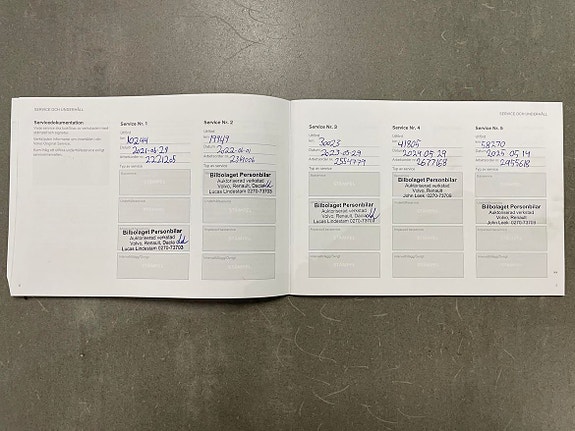 SERVICE OCH UNDERHÅLL
Servicedokumentation
Service Nr. 1
Utförd
km: 10244
Datum: 2021-06-29
Arbetsorder nr: 2221205
Typ av service
Bilbolaget Personbilar
Auktoriserad verkstad
Volvo, Renault, Dacia
Lucas Lindestam 0270-73703
Service Nr. 2
Utförd
km: 19949
Datum: 2022-06-01
Arbetsorder nr: 2391006
Typ av service
Bilbolaget Personbilar
Auktoriserad verkstad
Volvo, Renault, Dacia
Lucas Lindestam 0270-73703
SERVICE OCH UNDERHÅLL
Service Nr. 3
Utförd
km: 30023
Datum: 2023-05-29
Arbetsorder nr: 2554779
Typ av service
Bilbolaget Personbilar
Auktoriserad verkstad
Volvo, Renault, Dacia
Lucas Lindestam 0270-73703
Service Nr. 4
Utförd
km: 41805
Datum: 2024-05-29
Arbetsorder nr: 2677168
Typ av service
Bilbolaget Personbilar
Auktoriserad verkstad
Volvo, Renault
John Leek 0270-73709
Service Nr. 5
Utförd
km: 58270
Datum: 2025-05-14
Arbetsorder nr: 2955618
Typ av service
Bilbolaget Personbilar
Auktoriserad verkstad
Volvo, Renault
John Leek 0270-73709